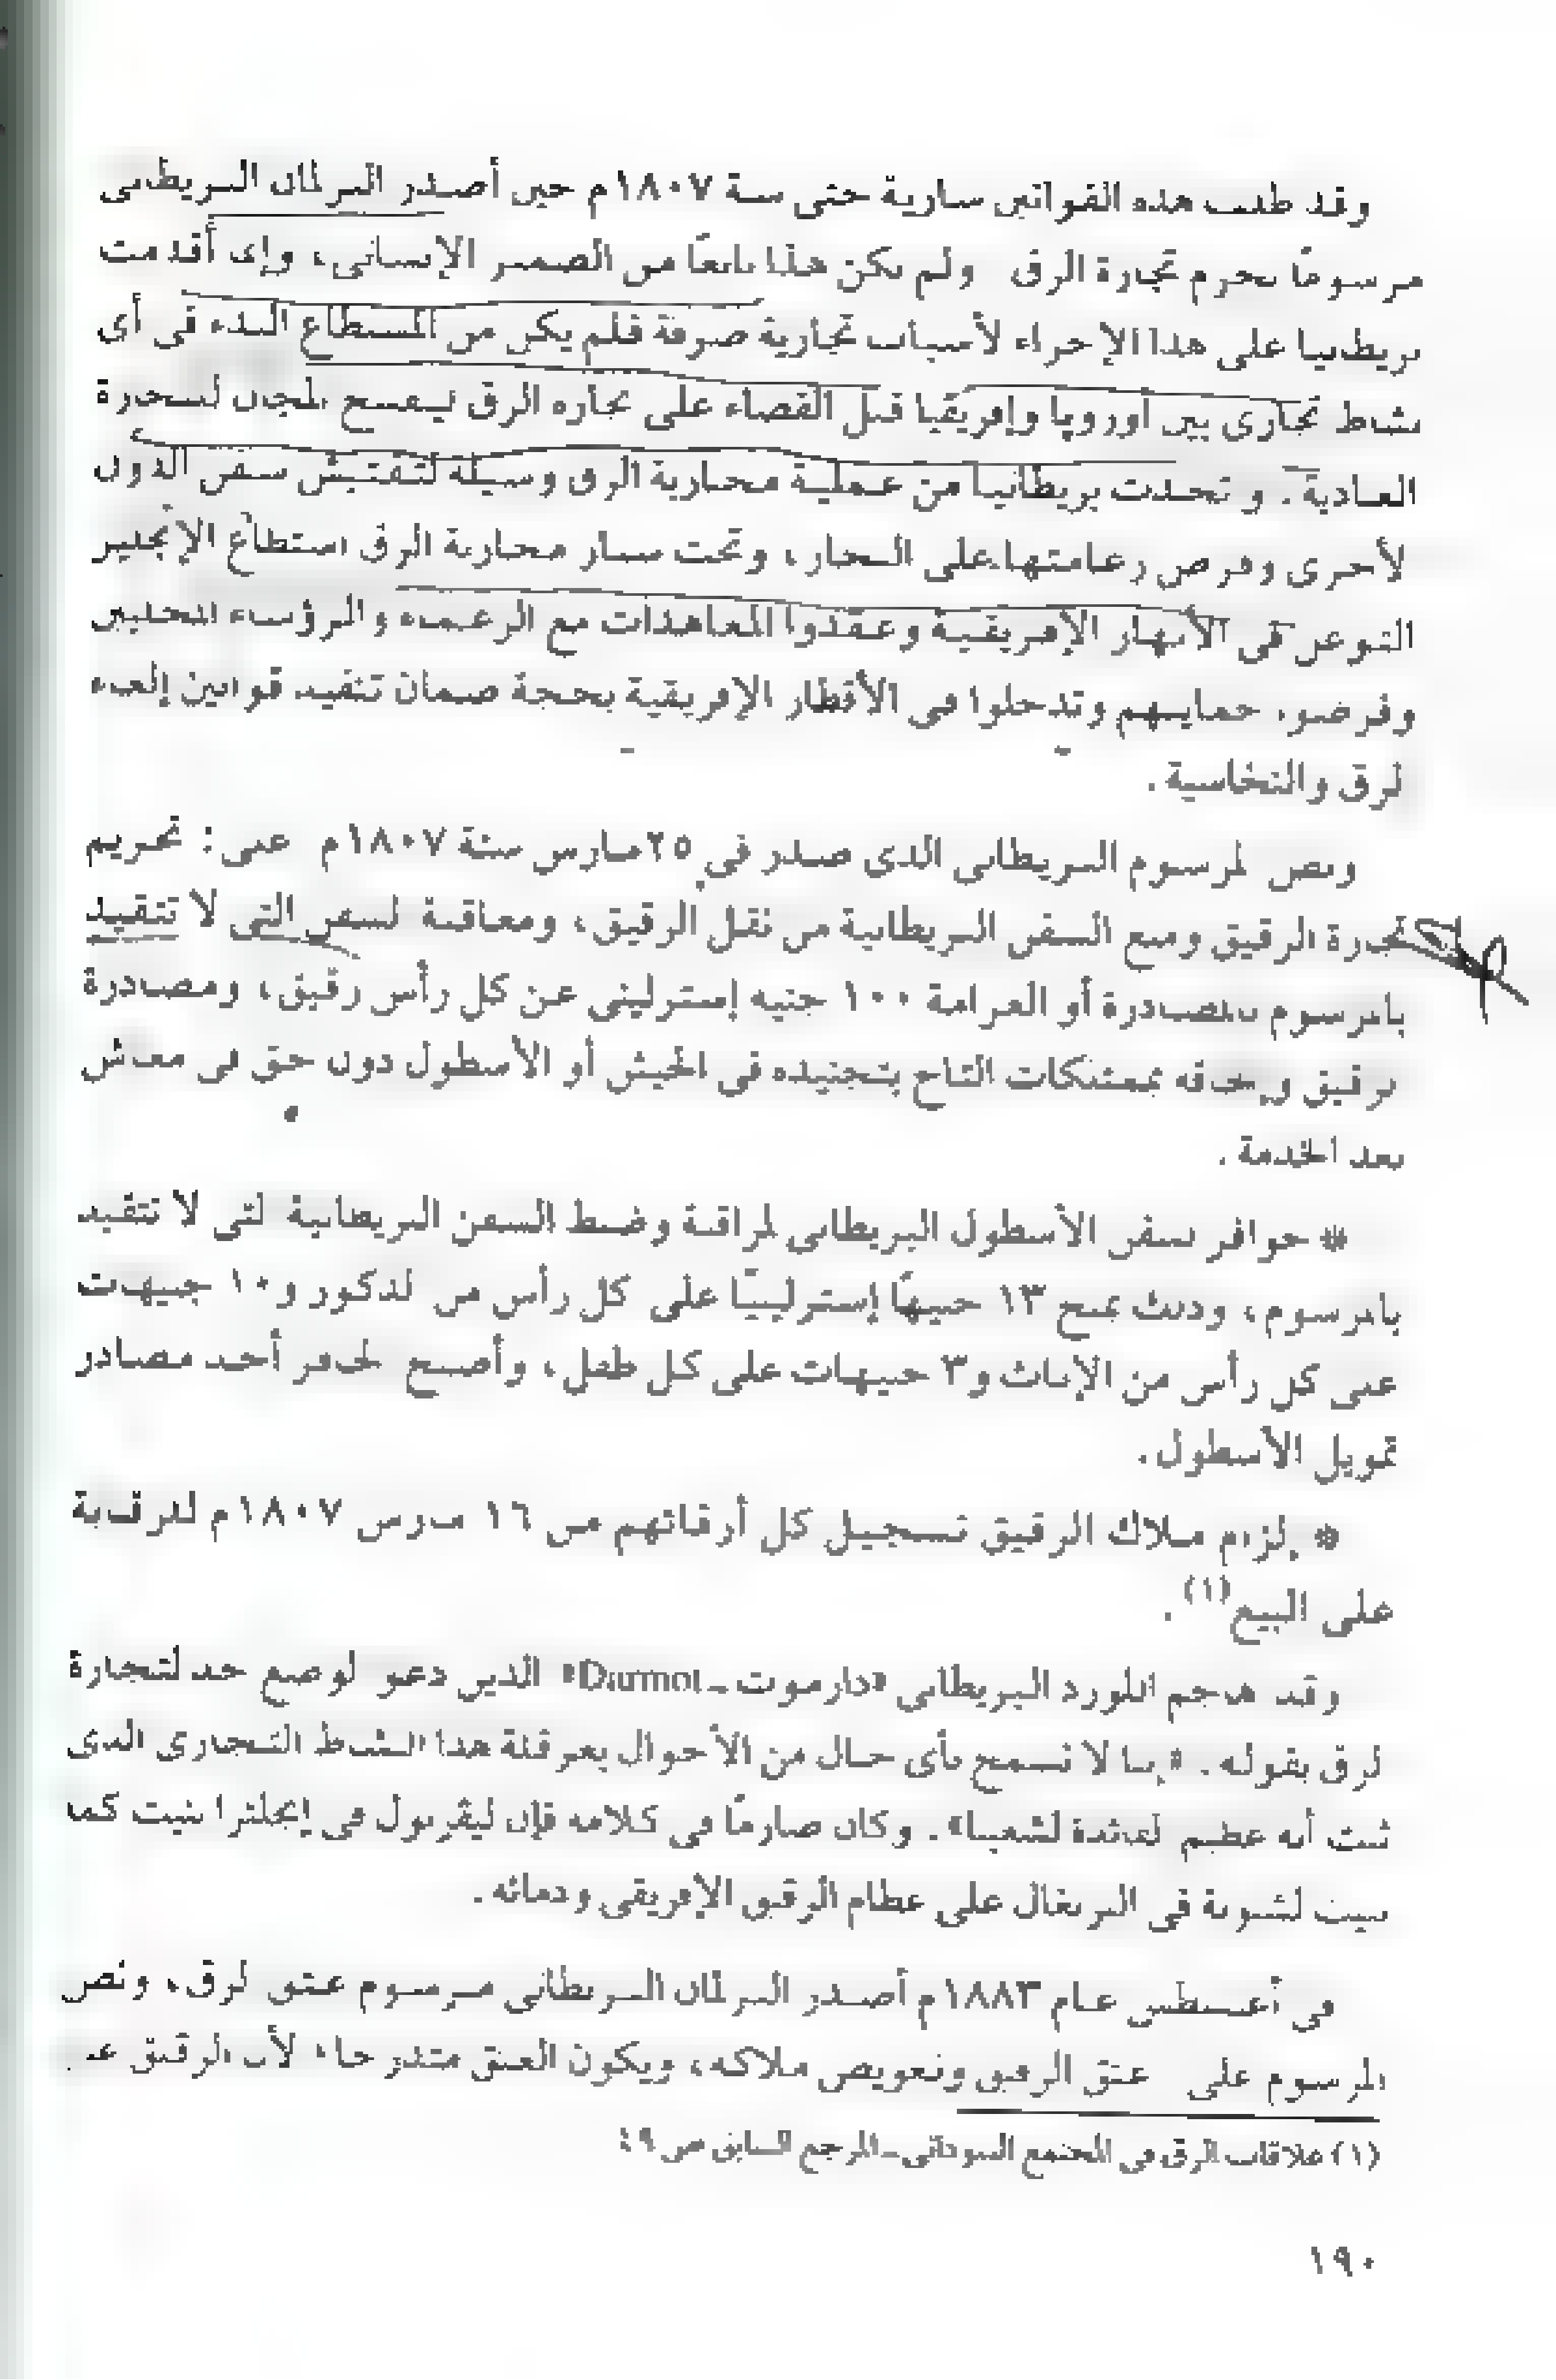 وقد ظلت هذه القوانين سارية حتى سنة ١٨٠٧م حين أصدر البرلمان البريطانى
مرسومًا بتحريم تجارة الرق ولم يكن هذا نابعًا من الضمير الإنسانى، وإنما أقدمت
بريطانيا على هذا الإجراء لأسباب تجارية صرفة فلم يكن من المستطاع البدء فى أى
نشاط تجارى بين أوروبا وإفريقيا قبل القضاء على تجارة الرق ليفسح المجال للتجارة
العادية. واتخذت بريطانيا من عملية محاربة الرق وسيلة لتفتيش سفن الدول
الأخرى وفرض زعامتها على البحار، وتحت ستار محاربة الرق استطاع الإنجليز
التوغل فى الأنهار الإفريقية وعقدوا المعاهدات مع الزعماء والرؤساء المحليين
وفرضوا حمايتهم وتدخلوا فى الأقطار الإفريقية بحجة ضمان تنفيذ قوانين إلغاء
الرق والنخاسة.
ونص المرسوم البريطانى الذى صدر فى ٢٥ مارس سنة ١٨٠٧م على: تحريم
تجارة الرقيق ومنع السفن البريطانية من نقل الرقيق، ومعاقبة السفن التى لا تتقيد
بالمرسوم بالمصادرة أو الغرامة ١٠٠ جنيه إسترلينى عن كل رأس رقيق، ومصادرة
الرقيق وإلحاقه بممتلكات التاج بتجنيده فى الجيش أو الأسطول دون حق فى معاش
بعد الخدمة.
* حوافز لسفن الأسطول البريطانى لمراقبة وضبط السفن البريطانية التى لا تتقيد
بالمرسوم، وذلك بمنح ١٣ جنيهًا إسترلينيًا على كل رأس من الذكور و١٠ جنيهات
على كل رأس من الإناث و٣ جنيهات على كل طفل، وأصبح الحافز أحد مصادر
تمويل الأسطول.
* إلزام ملاك الرقيق تسجيل كل أرقائهم من ١٦ مارس ١٨٠٧م للرقابة
على البيع(١).
وقد هاجم اللورد البريطانى «دارموت ـ Darmot» الذين دعو لوضع حد لتجارة
الرق بقوله. «إننا لا نسمح بأى حال من الأحوال بعرقلة هذا النشاط التجارى الذى
ثبت أنه عظيم الفائدة لشعبنا». وكان صارمًا فى كلامه فإن ليڤربول فى إنجلترا بنيت كما
بنيت لشبونة فى البرتغال على عظام الرقيق الإفريقى ودمائه.
فى أغسطس عام ١٨٨٣م أصدر البرلمان البريطانى مرسوم عتق الرق، ونص
المرسوم على عتق الرقيق وتعويض ملاكه، ويكون العتق متدرجا؛ لأن الرقيق
(١) علاقات الرق فى المجتمع السودانى ـ المرجع السابق ص ٤٩
١٩٠